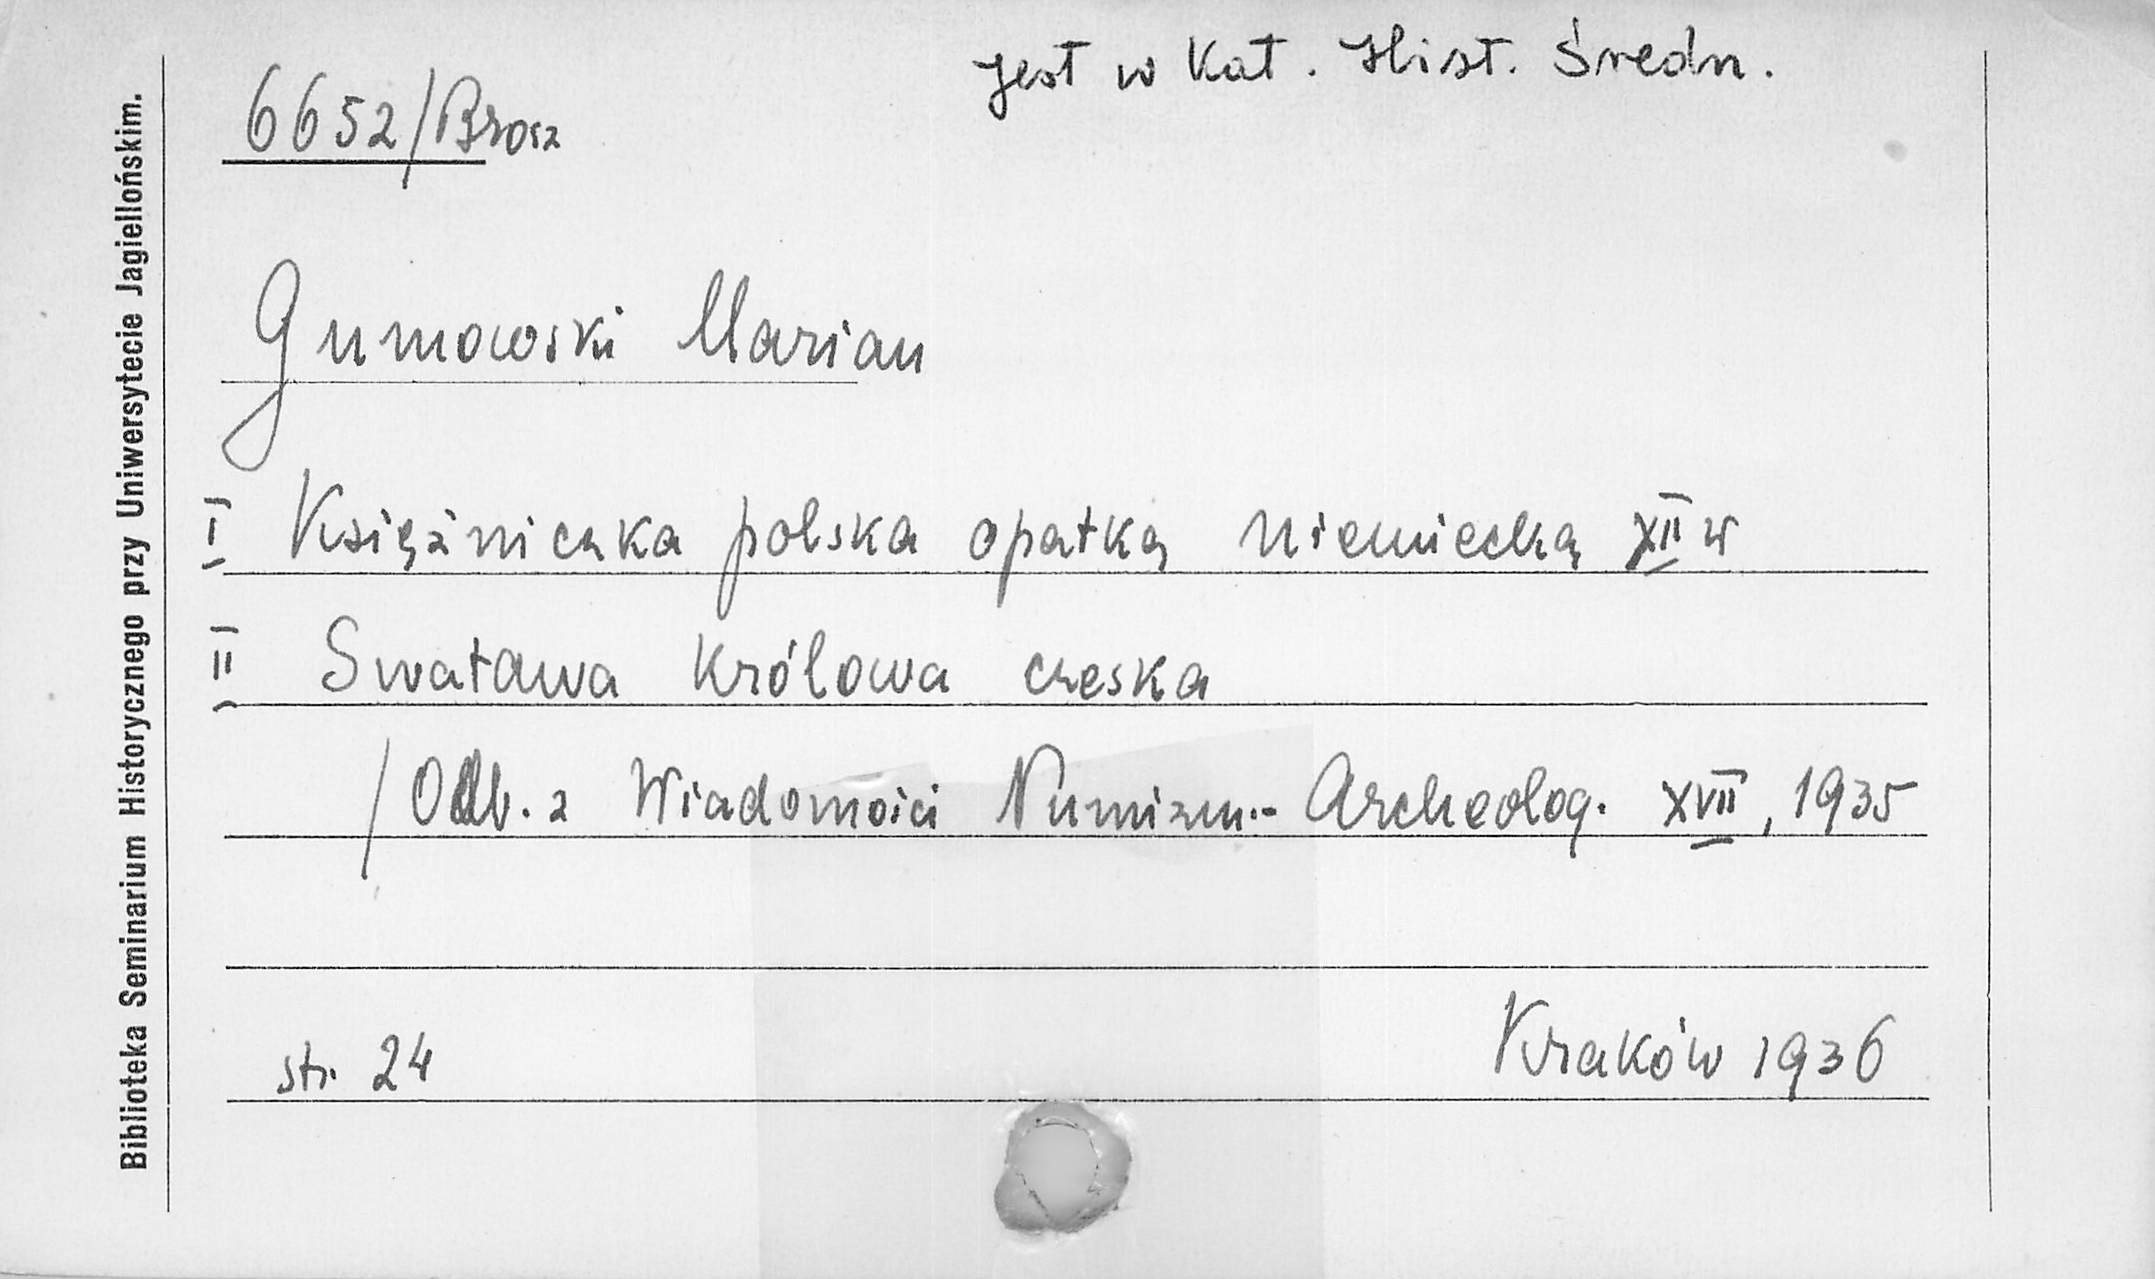 Jest w Kat. Hist. Średn.
6652/Brosz
Gumowski Marian
I Księżniczka polska opatką niemiecką XII w
II Swatawa królowa czeska
/Odb. z Wiadomości Numizm.- Archeolog. XVII, 1935
str. 24 Kraków 1936
Biblioteka Seminarium Historycznego przy Uniwersytecie Jagiellońskim.